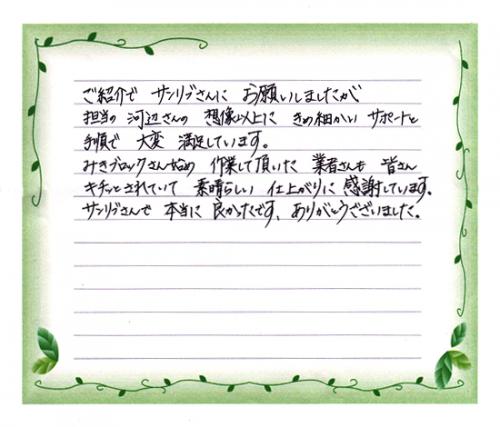 ご紹介で サンリブさんに お願いしましたが
担当の 河辺さんの 想像以上に きめ細かい サポートと
手順で 大変 満足しています。
みきブロックさん始め 作業して頂いた 業者さんも 皆さん
キチッとされていて 素晴らしい 仕上がりに 感謝しています。
サンリブさんで 本当に 良かったです、ありがとうございました。